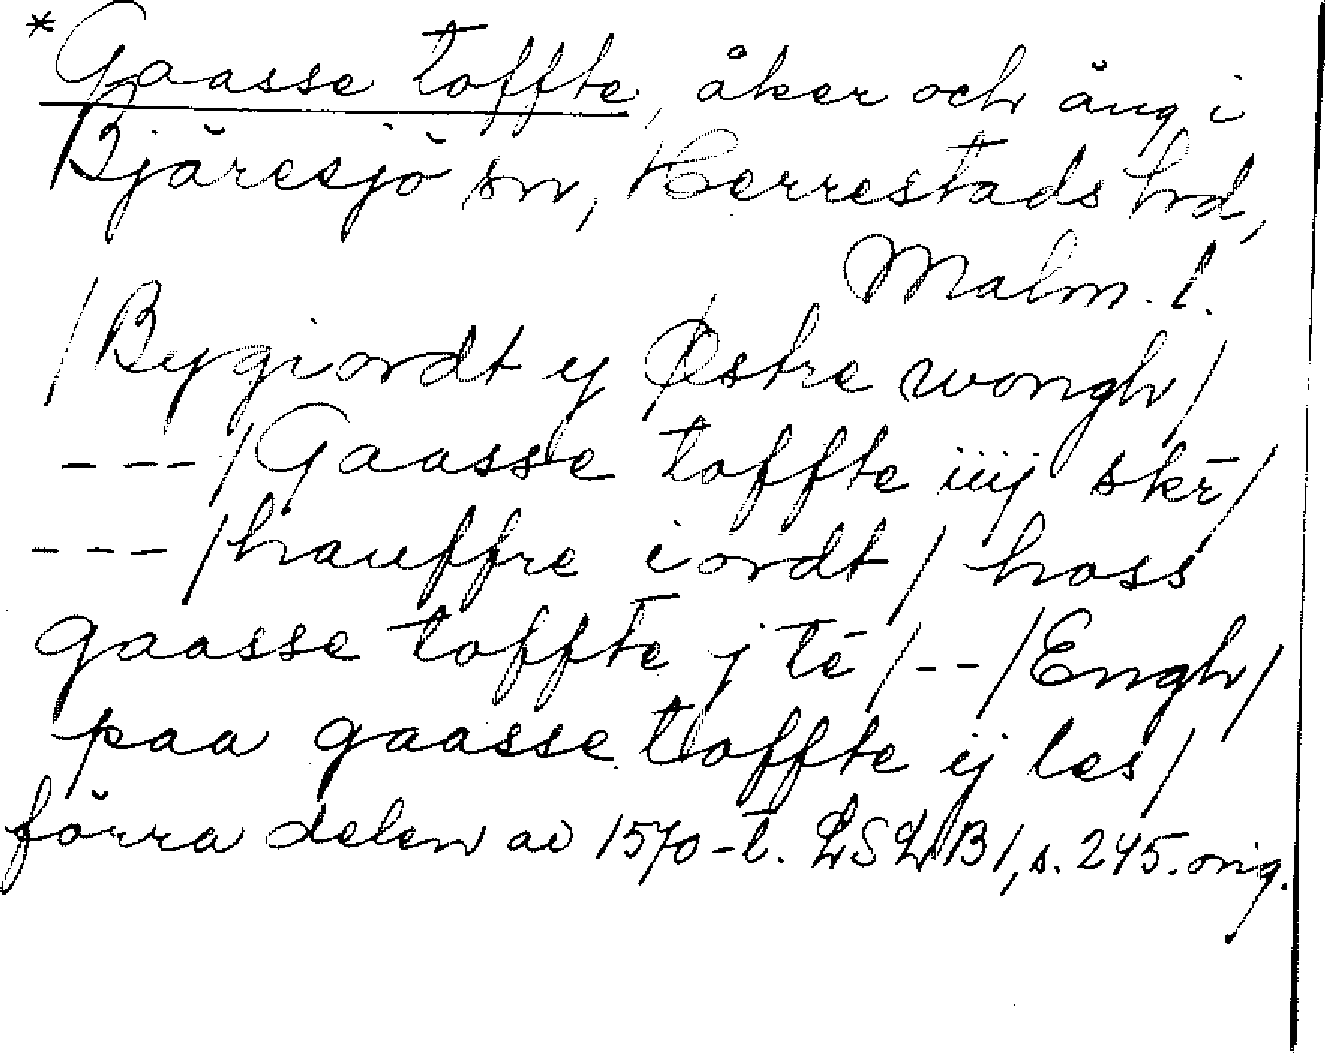 *Gaasse toffte, åker och äng i
Bjäresjö sn, Herrestads hd,
Malm. l.
/Bygiordt ij Østre wongh/
---/Gaasse toffte iiij skr̄/
---/hauffre iordt/ hoss
gaasse toffte j tē /--/Engh/
paa gaasse toffte ij les/
förra delen av 1570-t. LSLB1, s. 245. orig.